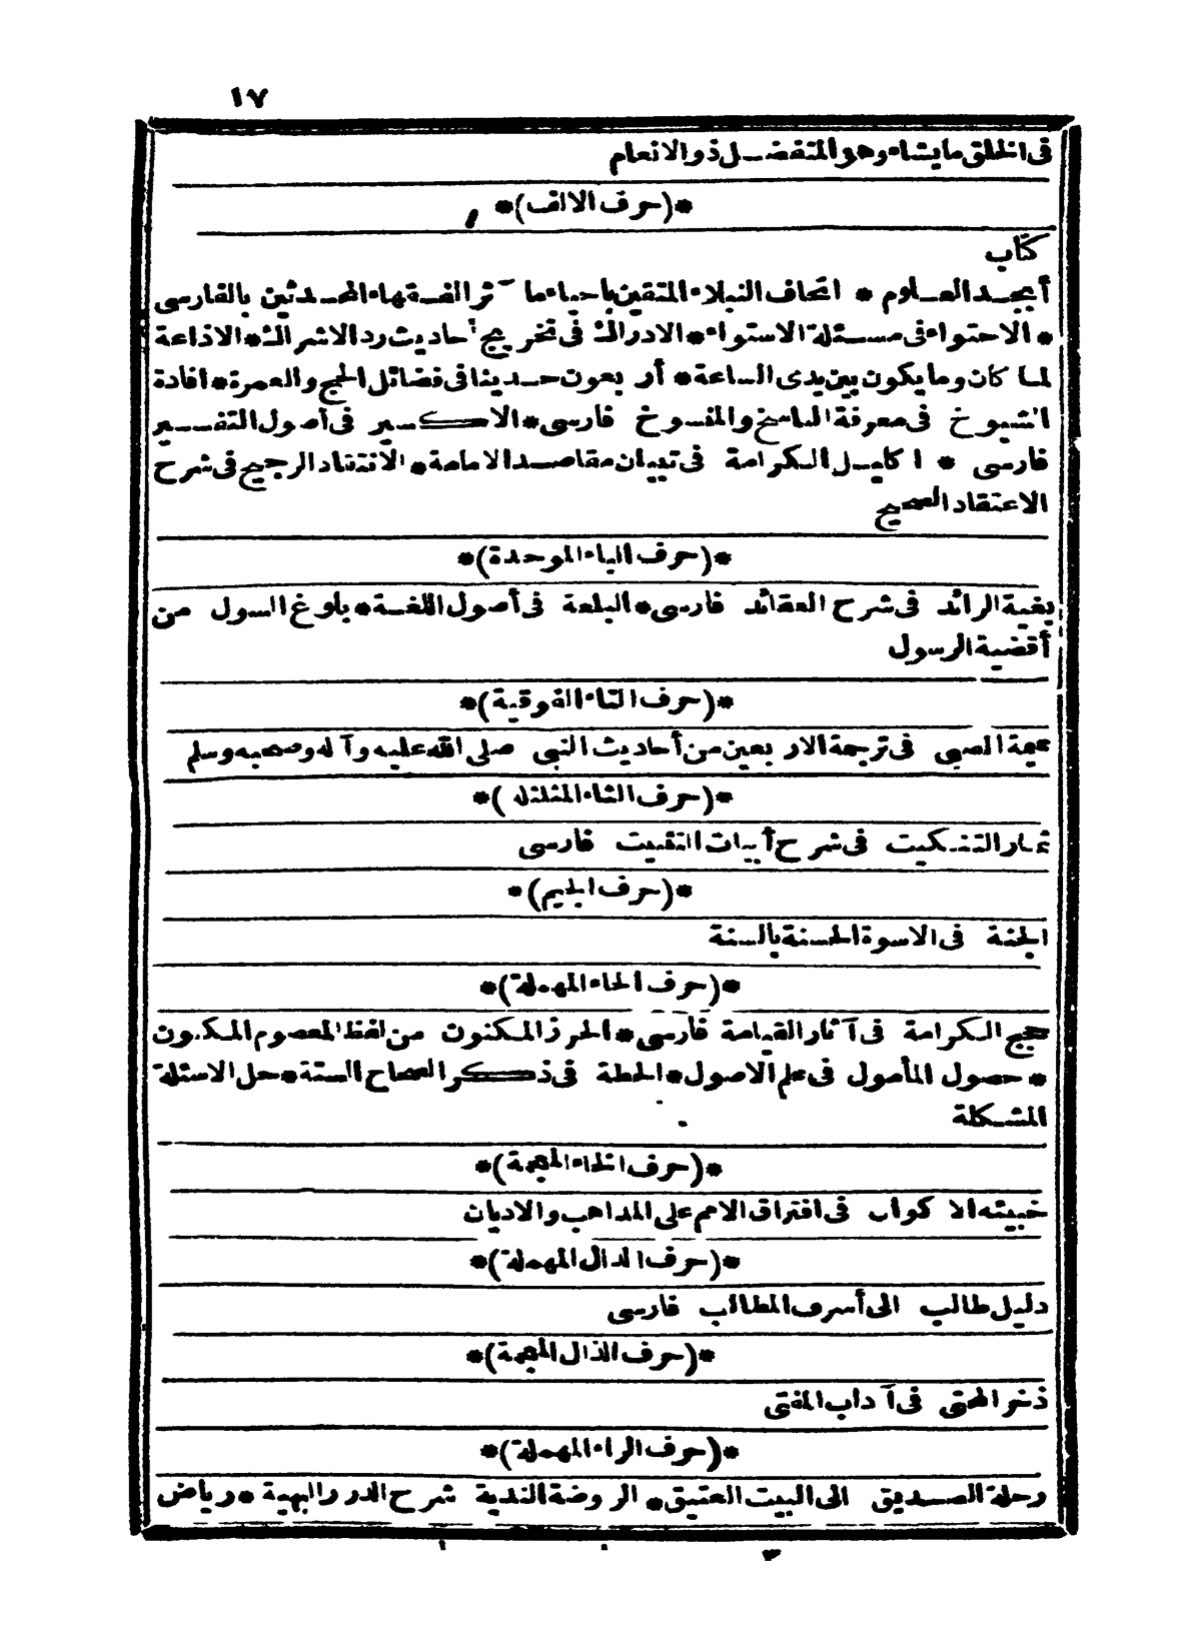 ١٧
فى الخلق ما يشاء وهو المتفضل ذو الانعام
*(حرف الالف)*
كتاب
أبجد العلوم * اتحاف النبلاء المتقين باحياء مآثر الفقهاء المحدثين بالفارسى
* الاحتواء فى مسئلة الاستواء * الادراك فى تخريج أحاديث رد الاشراك * الاذاعة
لما كان وما يكون بين يدى الساعة * أربعون حديثا فى فضائل الحج والعمرة * افادة
الشيوخ فى معرفة الناسخ والمنسوخ فارسى * الاكسير فى أصول التفسير
فارسى * اكليل الكرامة فى تبيان مقاصد الامامة * الانتقاد الرجيح فى شرح
الاعتقاد الصحيح
*(حرف الباء الموحدة)*
بغية الرائد فى شرح العقائد فارسى * البلغة فى أصول اللغة * بلوغ السول من
أقضية الرسول
*(حرف التاء الفوقية)*
تميمة الصبى فى ترجمة الاربعين من أحاديث النبى صلى الله عليه وآله وصحبه وسلم
*(حرف الثاء المثلثة)*
ثمار التنكيت فى شرح أبيات التثبيت فارسى
*(حرف الجيم)*
الجنة فى الاسوة الحسنة بالسنة
*(حرف الحاء المهملة)*
حجج الكرامة فى آثار القيامة فارسى * الحرز المكنون من لفظ المعصوم المكنون
* حصول المأمول فى علم الاصول * الحطة فى ذكر الصحاح الستة * حل الاسئلة
المشكلة
*(حرف الخاء المعجمة)*
خبيئة الاكوان فى افتراق الامم على المذاهب والاديان
*(حرف الدال المهملة)*
دليل طالب الى أشرف المطالب فارسى
*(حرف الذال المعجمة)*
ذخر المحتى فى آداب المفتى
*(حرف الراء المهملة)*
رحلة الصديق الى البيت العتيق * الروضة الندية شرح الدرر البهية * رياض
٣